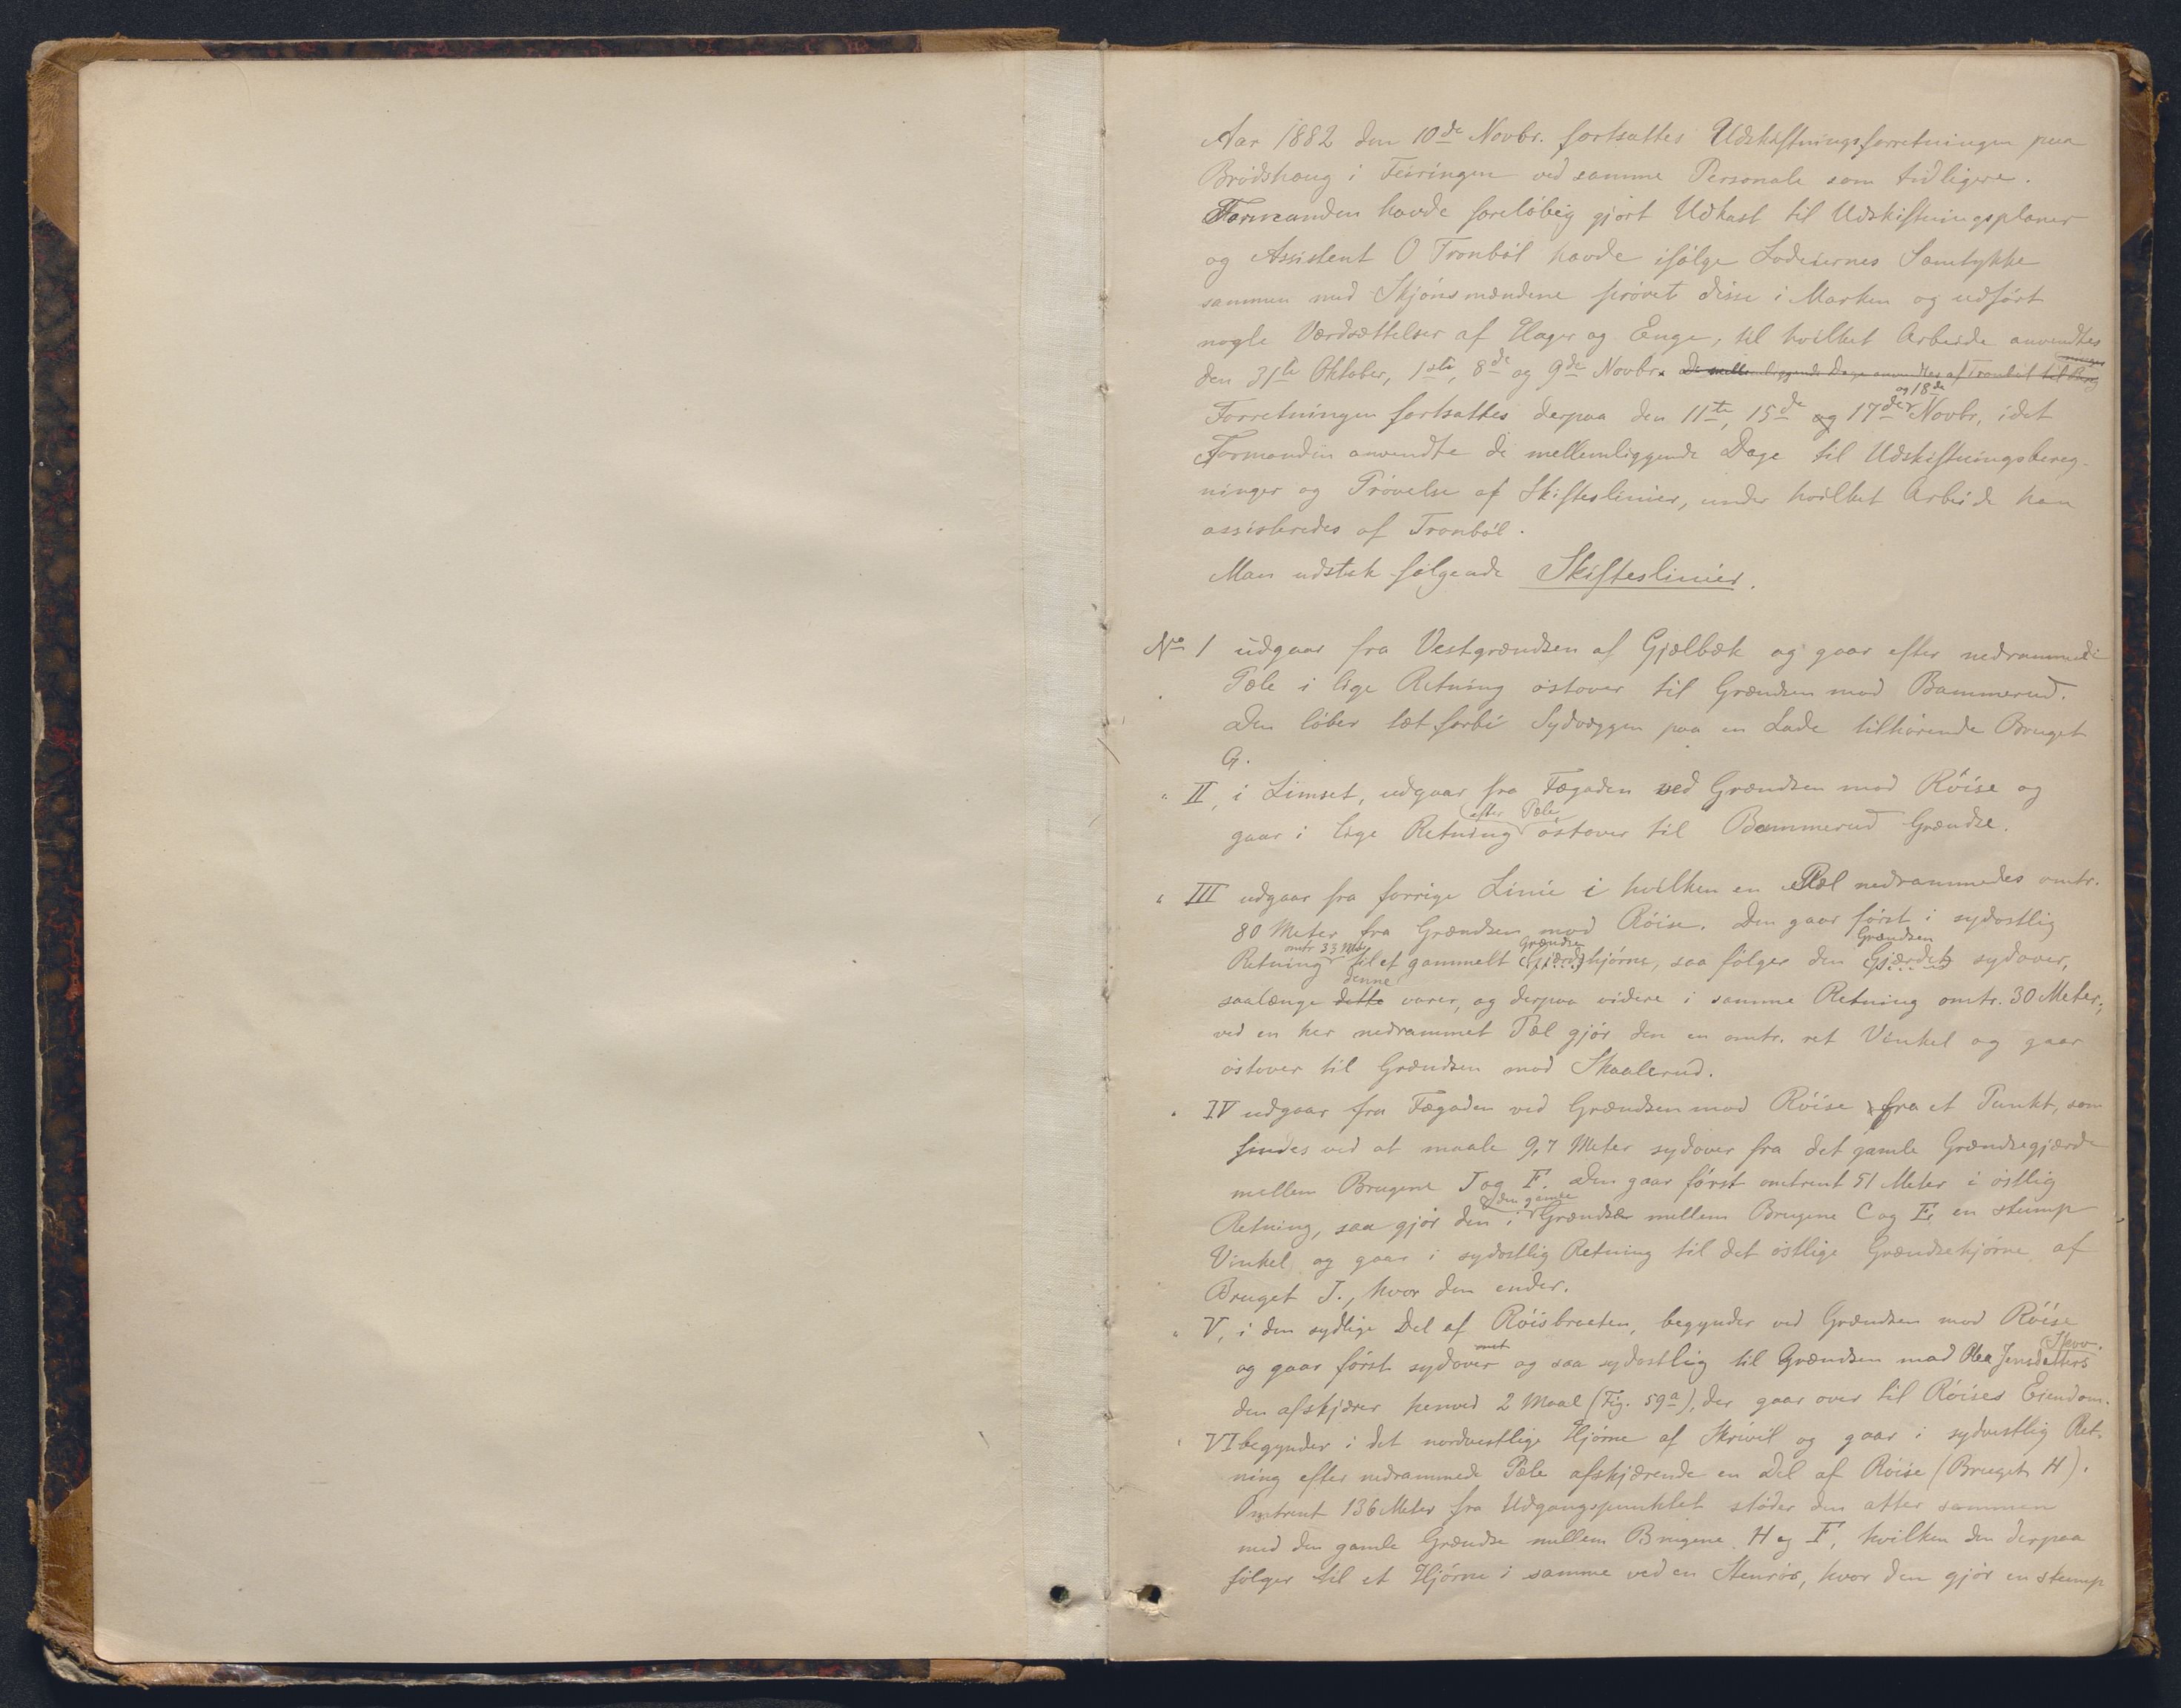 Aar 1882 den 10de Novbr. fortsattes Udskiftningsforretningen paa
Brødshoug i Feiringen ved samme Personale som tidligere.
Formanden havde foreløbig gjort Udkast til Udskiftningsplaner
og Assistent O Tronbøl havde ifølge Lodeiernes Samtykke
sammen med Skjønsmændene prøvet disse i Marken og udført
nogle Værdsættelser af Hager og Enge, til hvilket Arbeide anvendtes
den 31te Oktober, 1ste, 8de og 9de Novbr. De mellemliggende Dage anvendtes af Tronbøl til Bereg
ninger
og 18de
Forretningen fortsattes derpaa den 11te, 15de og 17de Novbr, idet
Formanden anvendte de mellemliggende Dage til Udskiftningsbereg-
ninger og Prøvelse af Skifteslinier, under hvilket Arbeide han
assisteredes af Tronbøl.
Man udstak følgende Skifteslinier.
No 1 udgaar fra Vestgrændsen af Gjælbæk og gaar efter nedrammede
Pæle i lige Retning østover til Grændsen mod Bammerud.
Den løber tæt forbi Sydvæggen paa en Lade tilhørende Bruget
G.
" II, i Limset, udgaar fra Fægaden ved Grændsen mod Røise og
efter Pæle
gaar i lige Retning østover til Bammerud Grændse.
" III udgaar fra forrige Linie i hvilken en Pæl nedrammedes omtr.
80 Meter fra Grændsen mod Røise. Den gaar først i sydostlig
omtr 33 Mtr Grændse Grændsen
Retning til et gammelt (Gjærde)hjørne, saa følger den Gjærdet sydover,
denne
saalænge dette varer, og derpaa videre i samme Retning omtr. 30 Meter;
ved en her nedrammet Pæl gjør den en omtr. ret Vinkel og gaar
østover til Grændsen mod Skaalerud.
" IV udgaar fra Fægaden ved Grændsen mod Røise fra et Punkt, som
findes ved at maale 9,7 Meter sydover fra det gamle Grændsegjærde
mellem Brugene J og F. Den gaar først omtrent 51 Meter i østlig
den gamle
Retning, saa gjør den i Grændse mellem Brugene C og F, en stump
Vinkel og gaar i sydostlig Retning til det østlige Grændsehjørne af
Bruget J., hvor den ender.
" V, i den sydlige Del af Røisbraaten, begynder ved Grændsen mod Røise
Skov.
og gaar først sydover og saa sydostlig til Grændsen mod Jensdatters
den afskjærer henved 2 Maal (Fig. 59a), der gaar over til Røises Eiendom.
" VI begynder i det nordvestlige Hjørne af Skrivil og gaar i sydvestlig Ret-
ning efter nedrammede Pæle afskjærende en Del af Røise (Bruget H).
Omtrent 136 Meter fra Udgangspunktet støder den atter sammen
med den gamle Grændse mellem Brugene H og F, hvilken den derpaa
følger til et Hjørne i samme ved en Stenrøs, hvor den gjør en stump